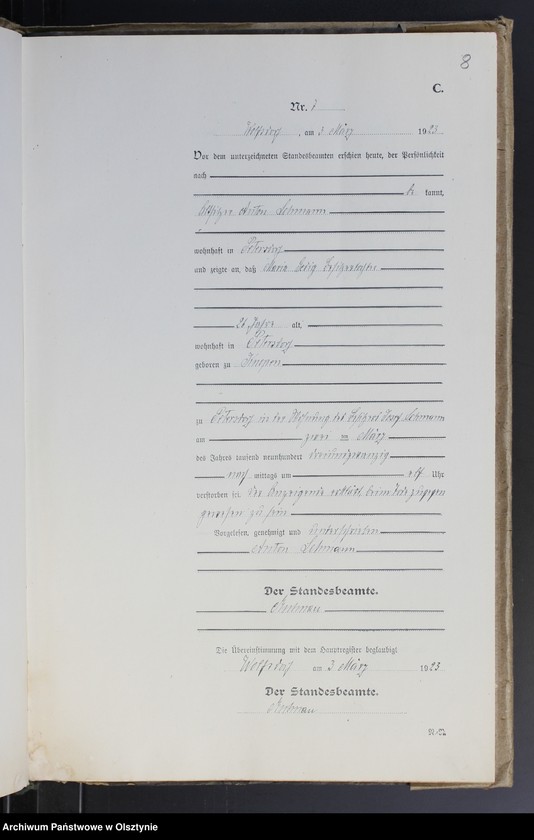 8
C.
Nr.
Wolfsdorf, am 3 März 1923
Vor dem unterzeichneten Standesbeamten erschien heute, der Persönlichkeit
nach
be kannt,
Altsitzer Anton Lehmann
wohnhaft in Petersdorf
und zeigte an, daß Maria
21 Jahre alt,
wohnhaft in Petersdorf
geboren zu
zu Petersdorf in der Wohnung des Besitzers Josef Lehmann
am zwei März
des Jahres tausend neunhundert dreiundzwanzig
nach mittags um Uhr
verstorben sei. Der Anzeigende erklärte, beim Tode zugegen
gewesen zu sein
Vorgelesen, genehmigt und unterschrieben
Anton Lehmann
Der Standesbeamte.
Die Übereinstimmung mit dem Hauptregister beglaubigt
Wolfsdorf am 3 März 1923
Der Standesbeamte.
Archiwum Państwowe w Olsztynie